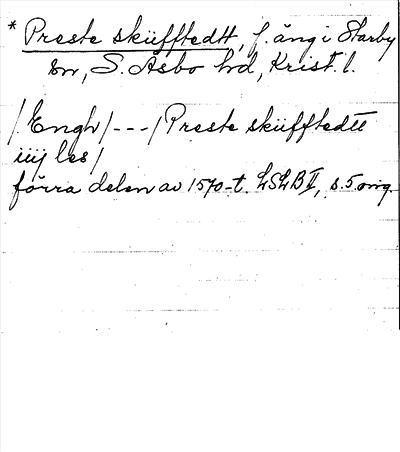 * Preste sküfftedtt, f. äng i Starby
sn, S. Åsbo hd, Krist. l.
/Engh/ - - - / Preste sküfftedtt
iiij les/
förra delen av 1570-t. LSLB II, s. 5 orig.